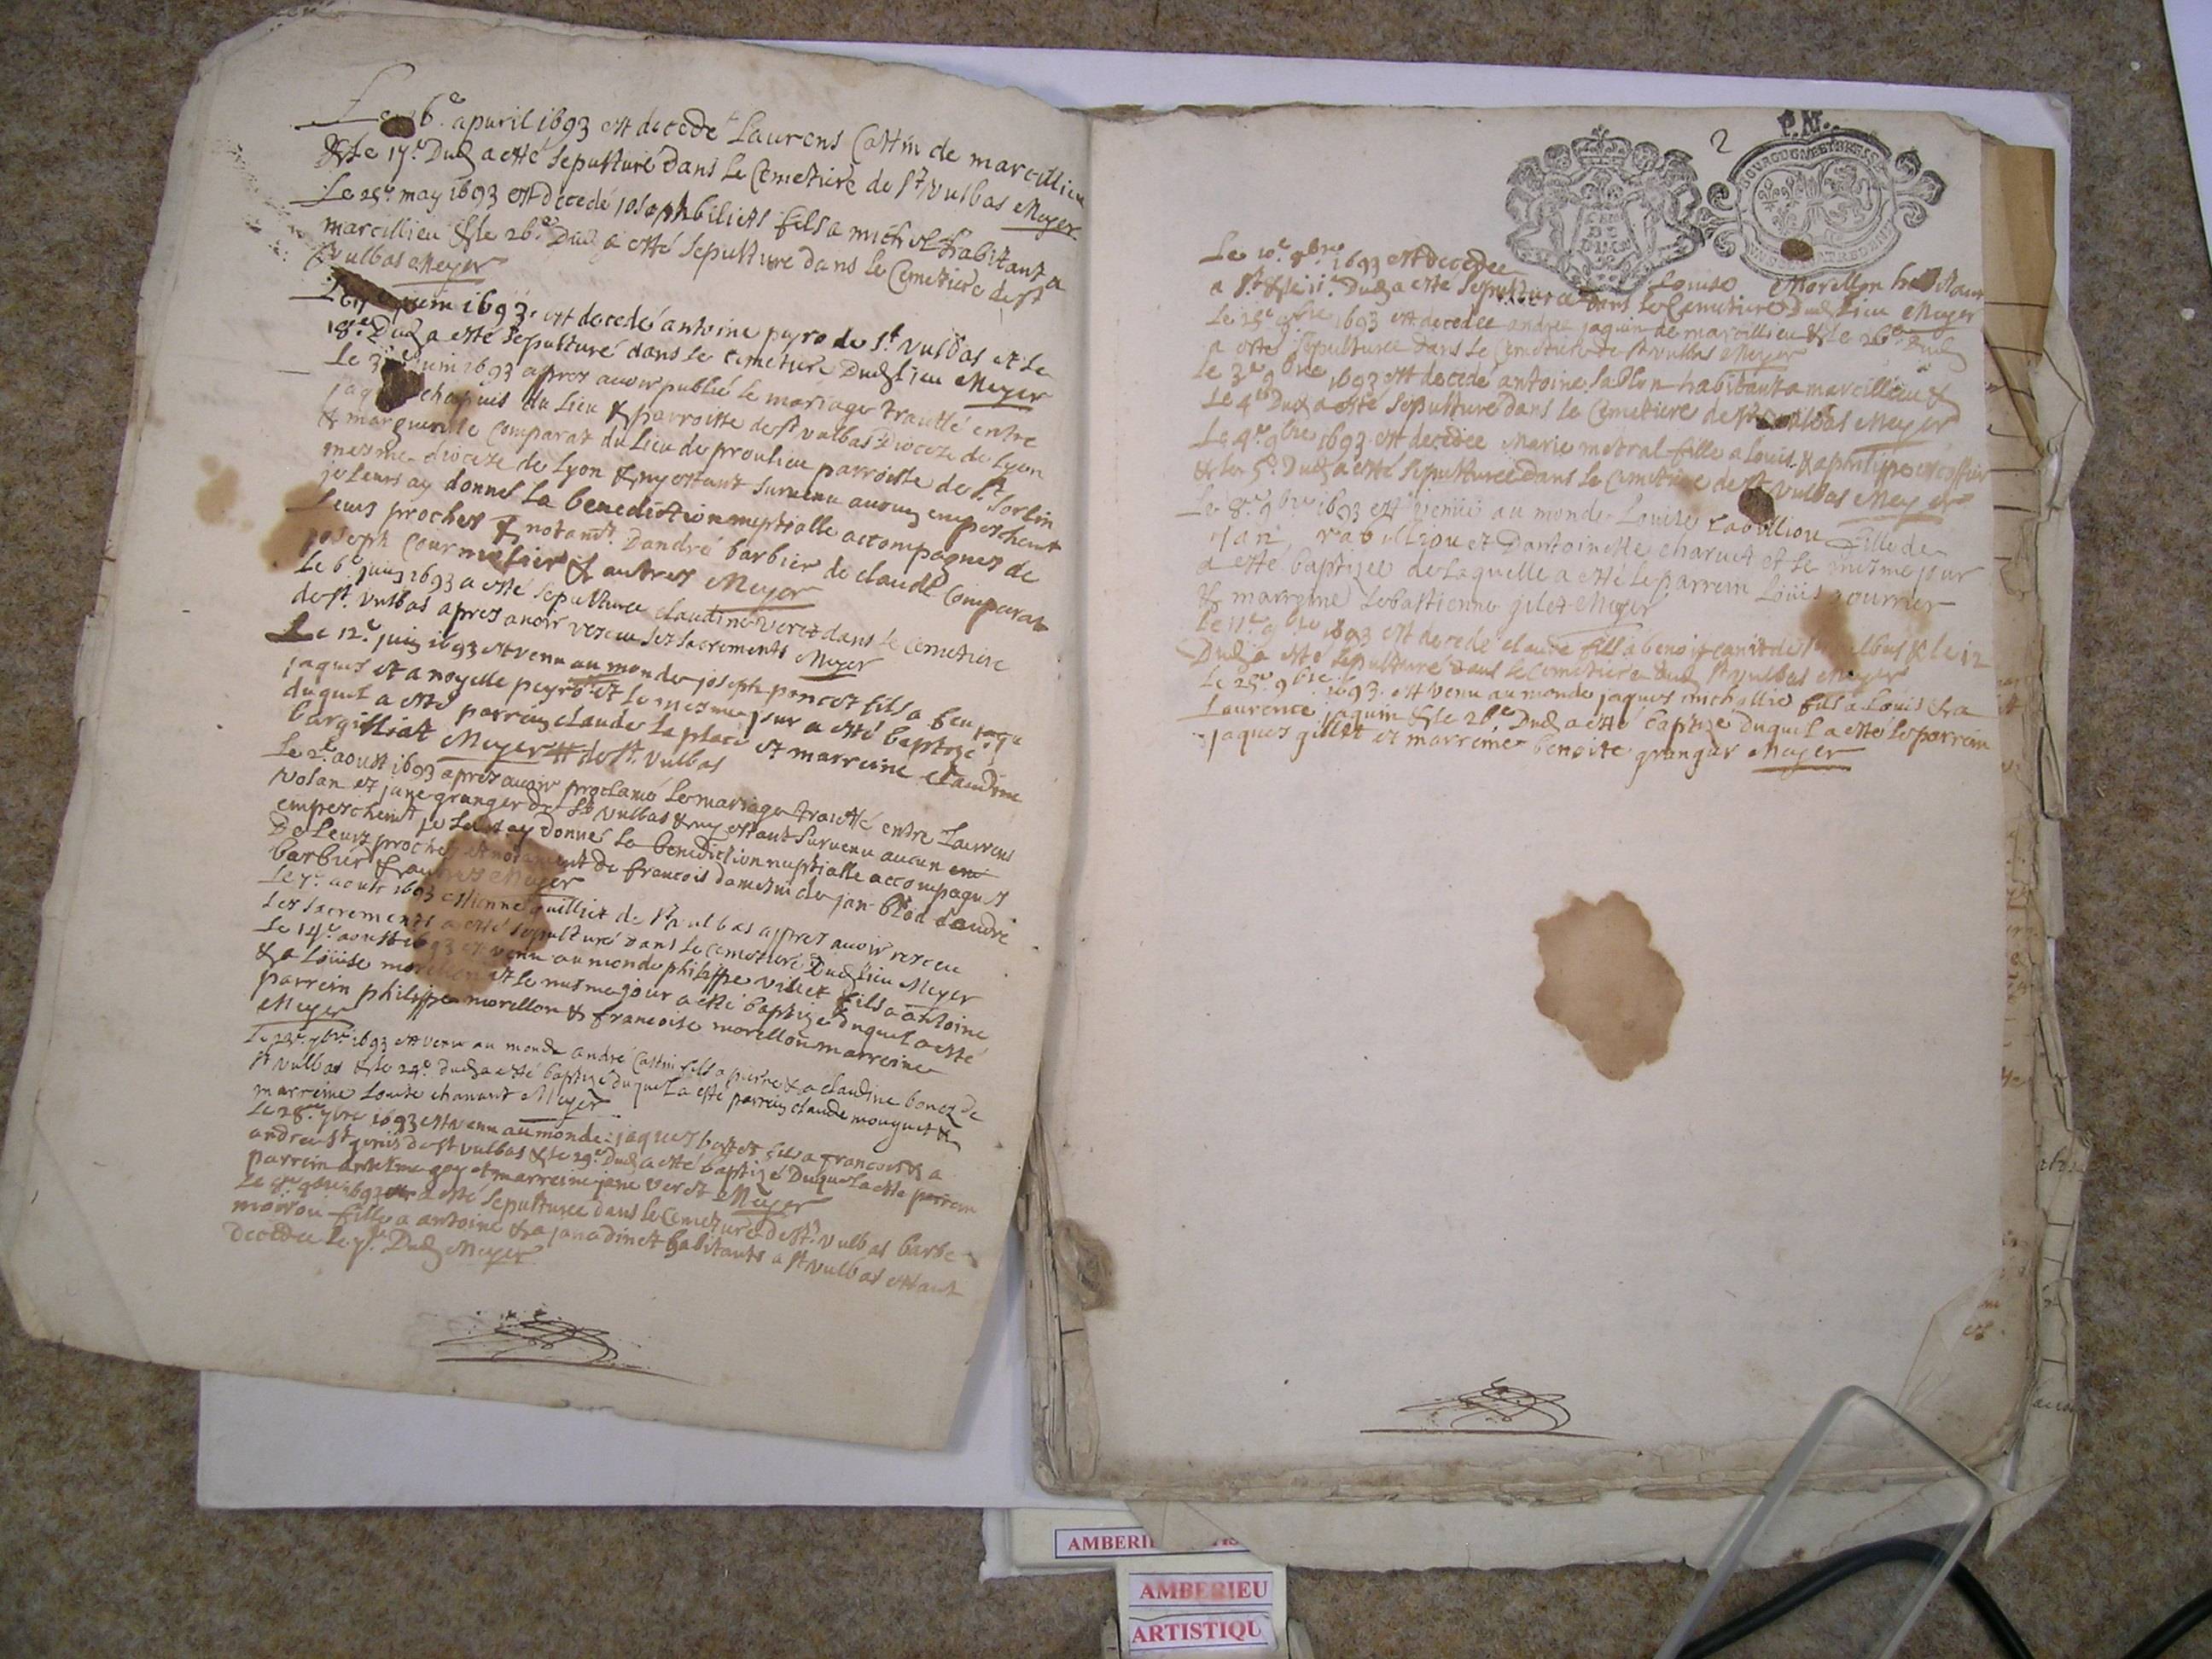 Le 16e apuril 1693 est decede Laurens Cottin de marcillieu
& Le 17e Dud a esté sepulturé dans Le Cemetiere de St Vulbas Meyer
Le 25e may 1693 est decedé joseph biliets fils a michel habitant a
marcillieu & le 26e Dud a esté sepulturé dans le Cemetiere de st
Vulbas Meyer
juin 1693 est decedé antoine peyro de St Vulbas et Le
18e Dud a esté sepulturé dans le cemetiere Dud Lieu Meyer
Le 3e juin 1693 apres avoir publié le mariage traitté entre
chapuis du Lieu & parroisse de st vulbas Dioceze de Lyon
& marguerite Comparat du Lieu de proulieu parroisse de St Sorlin
mesme dioceze de Lyon & ny estant survenu aucun empeschent
je Leurs ay donnel La benediction nuptialle accompagnes de
Leurs proches & notant Dandré barbier de claude Comparat
joseph & autres Meyer
Le 6e juin 1693 a esté sepulturee claudine veret dans le cemetiere
de st Vulbas apres avoir receu ses sacrements Meyer
Le 12e juin 1693 est venu au monde joseph poncet fils a feu
jaques et a noyelle peyro et le mesme jour a esté baptizé
duquel a esté parrein claude La place et marreine claudine
bargilliat Meyer de St Vulbas
Le 2e aoust 1693 apres avoir proclamé le mariage traitté entre Laurens
volan et jane granger de St Vulbas & ny estant survenu aucun em
empeschemt je Leurs ay donnel La benediction nuptialle accompagnes
De Leurs proches et notament de francois jan dandré
barbier & autres Meyer
Le 7e aoust 1693 estienne guilliet de St Vulbas apres avoir receu
Les sacrements a esté sepulturé dans Le cemetiere Dud Lieu Meyer
Le 14e aoust 1693 est venu au monde philippe villiet fils a antoine
& a Louise morellon et le mesme jour a esté baptizé duquel a esté
parrein philippe morellon & francoise morellon marreine
Meyer
Le 23e 7bre 1693 est venu au monde andré Cottin fils a pierre & a claudine bonet de
st vulbas & le 24e Dud a esté baptizé duquel a esté parrein claude mouquet &
marreine Louise chanant Meyer
Le 28e 7bre 1693 est venu au monde jaques fils a francois & a
andrea St genis de st vulbas & le 29e Dud a esté baptizé Duquel a esté parrein
parrein gay et marreine jane veret Meyer
Le 8e 8bre 1693 a esté sepulturee dans Le Cemetiere de St Vulbas barbe
fille a antoine & a jana dinet habitants a st vulbas estant
decedee le 7e Dud Meyer
2
P.N..
Le 10e 8bre 1693 est decedee Louise Morellon habitant
a St & le 11e Dud a esté sepulturee dans Le Cemetiere Dud Lieu Meyer
Le 25e 8bre 1693 est decedee andree jaquin de marcillieu & Le 26e Dud
a esté sepulturee dans Le Cemetiere de st vulbas Meyer
Le 3e 9bre 1693 est decedé antoine sablon habitant a marcillieu &
Le 4e Dud a esté sepulturé dans le Cemetiere de st vulbas Meyer
Le 4e 9bre 1693 est decedee Marie mestral fille a Louis & a philippe
& le 5e Dud a esté sepulturee dans Le Cemetiere de st vulbas Meyer
Le 8e 9bre 1693 est venüe au monde Louise rabillion fille de
jan rabillion et Dantoinette charvet et le mesme jour
a esté baptizee de Laquelle a esté Le parrein Louis
& marreine sebastienne gilet Meyer
Le 11e 9bre 1693 est decedé claude fils a benoit de St Vulbas & le 12
Dud a esté sepulturé dans Le Cemetiere dud st vulbas Meyer
Le 25e 9bre 1693 est venu au monde jaques michallie fils a Louis & a
Laurence jaquin & le 26e Dud a esté baptizé duquel a esté Le parrein
jaques gillet et marreine benoite granger Meyer
AMBERI
AMBERIEU
ARTISTIQU